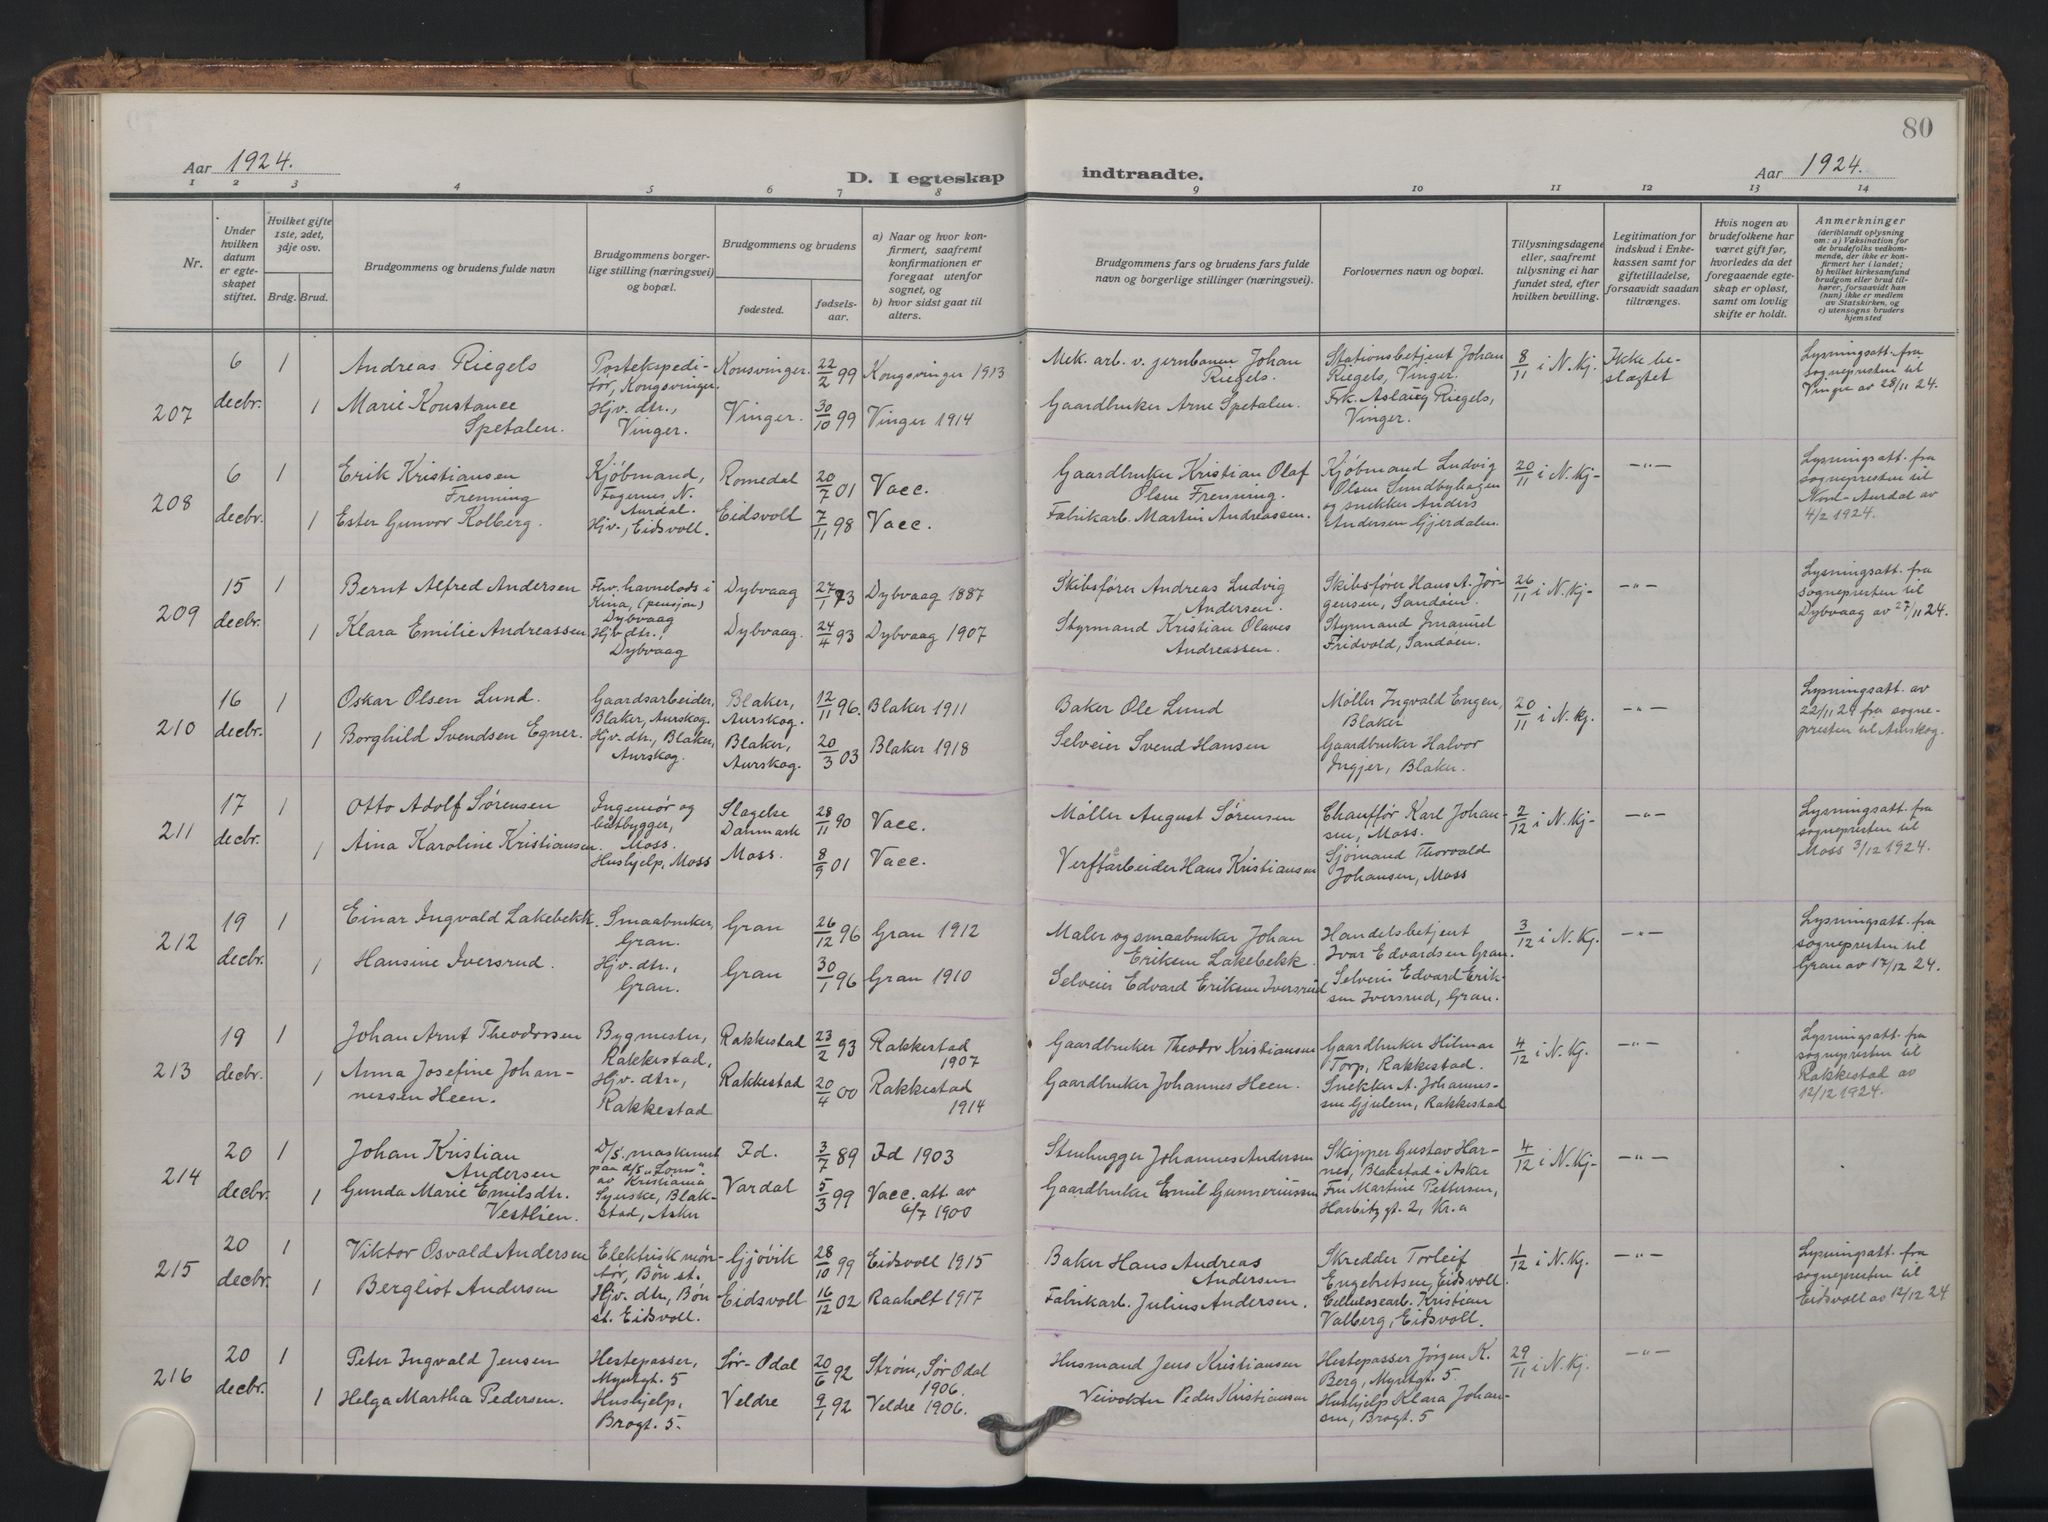 80
Aar 1924.
D. I egteskap indtraadte.
Aar 1924.
1 2 3 4 5 6 7 8 9 10 11 12 13 14
Nr.
Under hvilken datum er egteskapet stiftet.
Hvilket gifte 1ste, 2det, 3dje osv.
Brdg. Brud.
Brudgommens og brudens fulde navn
Brudgommens borgerlige stilling (næringsvei) og bopæl.
Brudgommens og brudens
fødested.
fødselsaar.
a) Naar og hvor konfirmert, saafremt konfirmationen er foregaat utenfor sognet, og
b) hvor sidst gaat til alters.
Brudgommens fars og brudens fars fulde navn og borgerlige stillinger (næringsvei).
Forlovernes navn og bopæl.
Tillysningsdagene eller, saafremt tillysning ei har fundet sted, efter hvilken bevilling.
Legitimation for indskud i Enkekassen samt for giftetilladelse, forsaavidt saadan tiltrænges.
Hvis nogen av brudefolkene har været gift før, hvorledes da det foregaaende egteskap er opløst, samt om lovlig skifte er holdt.
Anmerkninger
(deriblandt oplysning om: a) Vaksination for de brudefolks vedkommende, der ikke er konfirmert her i landet; b) hvilket kirkesamfund brudgom eller brud tilhører, forsaavidt han (hun) ikke er medlem av Statskirken, og c) utensogns bruders hjemsted
207 6 decbr. 1 Andreas Riegels Postekspeditør, Kongsvinger. Konsvinger. 22/2 99 Kongsvinger 1913
1 Marie Konstance Spetalen. Hjv. dtr., Vinger. Vinger. 30/10 99 Vinger 1914
Mek. arb. v. jernbanen Johan Riegels.
Gaardbruker Arne Spetalen.
Stationsbetjent Johan Riegels, Vinger.
Frk. Aslaug Riegels, Vinger.
8/11 i N. Kj. Ikke beslægtet
Lysningsatt. fra sognepresten til Vinger av 28/11 24.
208 6 decbr. 1 Erik Kristiansen Frenning Kjøbmand, Fagernes, N. Aurdal. Romedal 20/7 01 Vacc.
1 Ester Gunvor Kolberg. Hjv., Eidsvoll. Eidsvoll 7/11 98 Vacc.
Gaardbruker Kristian Olaf Olsen Frenning.
Fabrikarb. Martin Andreassen.
Kjøbmand Ludvig Olsen Sundbyhagen og snekker Anders Andersen Gjerdalen.
20/11 i N. Kj. —"—
Lysningsatt. fra sognepresten til Nord-Aurdal av 4/2 1924.
209 15 decbr. 1 Bernt Alfred Andersen Fhv. havnelods i Kina, (pensjon) Dybvaag Dybvaag 27/1 73 Dybvaag 1887
1 Klara Emilie Andreassen Hjv dtr., Dybvaag Dybvaag. 24/4 93 Dybvaag 1907
Skibsfører Andreas Ludvig Andersen.
Styrmand Kristian Olaves Andreassen.
Skibsfører Hans A. Jørgensen, Sandøen.
Styrmand Imanuel Fridvold, Sandøen.
26/11 i N. Kj. —"—
Lysningsatt. fra sognepresten til Dybvaag av 27/11 24.
210 16 decbr. 1 Oskar Olsen Lund. Gaardsarbeider, Blaker, Aurskog. Blaker, Aurskog. 12/11 96. Blaker 1911
1 Borghild Svendsen Egner. Hjv. dtr., Blaker, Aurskog. Blaker, Aurskog. 20/3 03 Blaker 1918
Baker Ole Lund
Selveier Svend Hansen
Møller Ingvald Engen, Blaker
Gaardbruker Halvor Ingjer, Blaker.
20/11 i N. Kj. —"—
Lysningsatt. av 22/11 24 fra sognepresten til Aurskog.
211 17 decbr. 1 Otto Adolf Sørensen Ingeniør og båtbygger, Moss. Slagelse Danmark 28/11 90 Vacc.
1 Aina Karoline Kristiansen. Hushjelp, Moss Moss. 8/9 01 Vacc.
Møller August Sørensen
Verftarbeider Hans Kristiansen
Chauffør Karl Johansen, Moss.
Sjømand Thorvald Johansen, Moss
2/12 i N. Kj. —"—
Lysningsatt. fra sognepresten til Moss 3/12 1924.
212 19 decbr. 1 Einar Ingvald Lakebekk. Smaabruker, Gran. Gran 26/12 96 Gran 1912
1 Hansine Iversrud. Hjv. dtr., Gran. Gran 30/1 96 Gran 1910
Maler og smaabruker Johan Eriksen Lakebekk
Selveier Edvard Eriksen Iversrud
Handelsbetjent Ivar Edvardsen Gran.
Selveier Edvard Eriksen Iversrud, Gran.
3/12 i N. Kj. —"—
Lysningsatt. fra sognepresten til Gran av 17/12 24.
213 19 decbr. 1 Johan Arnt Theodorsen Bygmester, Rakkestad, Rakkestad 23/2 93 Rakkestad 1907
1 Anna Josefine Johannessen Heen. Hjv. dtr., Rakkestad Rakkestad 20/4 00 Rakkestad 1914
Gaardbruker Theodor Kristiansen
Gaardbruker Johannes Heen.
Gaardbruker Hilmar Torp, Rakkestad.
Snekker A. Johannessen Gjulem, Rakkestad
4/12 i N. Kj. —"—
Lysningsatt. fra sognepresten til Rakkestad av 12/12 1924.
214 20 decbr. 1 Johan Kristian Andersen D/S. maskinist paa d/s "Lom" av Kristiania Id. 3/7 89 Id 1903
1 Gunda Marie Emilsdtr. Vestlien. Syerske, Blakstad, Asker Vardal 5/3 99 Vacc. att. av 6/7 1900
Stenhugger Johannes Andersen
Gaardbruker Emil Gunneriussen
Skipper Gustav Harnes, Blakstad i Asker
Fru Martine Pettersen, Harbitzgt. 2, Kr.a
4/12 i N. Kj. —"—
215 20 decbr. 1 Viktor Osvald Andersen Elektrisk montør, Bøn st. Gjøvik 28/10 99 Eidsvoll 1915
1 Bergliot Andersen Hjv. dtr, Bøn st. Eidsvoll. Eidsvoll 16/12 02 Raaholt 1917
Baker Hans Andreas Andersen
Fabrikarb. Julius Andersen.
Skredder Torleif Engebretsen, Eidsvoll
Cellulosearb. Kristian Valberg, Eidsvoll.
1/12 i N. Kj. —"—
Lysningsatt. fra sognepresten til Eidsvoll av 12/12 24
216 20 decbr. 1 Peter Ingvald Jensen Hestepasser, Myntgt. 5 Sør-Odal 20/6 92 Strøm, Sør Odal 1906.
1 Helga Martha Pedersen. Hushjelp, Brogt. 5. Veldre 9/1 92 Veldre 1906.
Husmand Jens Kristiansen
Veivokter Peder Kristiansen
Hestepasser Jørgen K. Berg, Myntgt. 5
Hushjelp Klara Johansen, Brogt. 5
29/11 i N. Kj. —"—